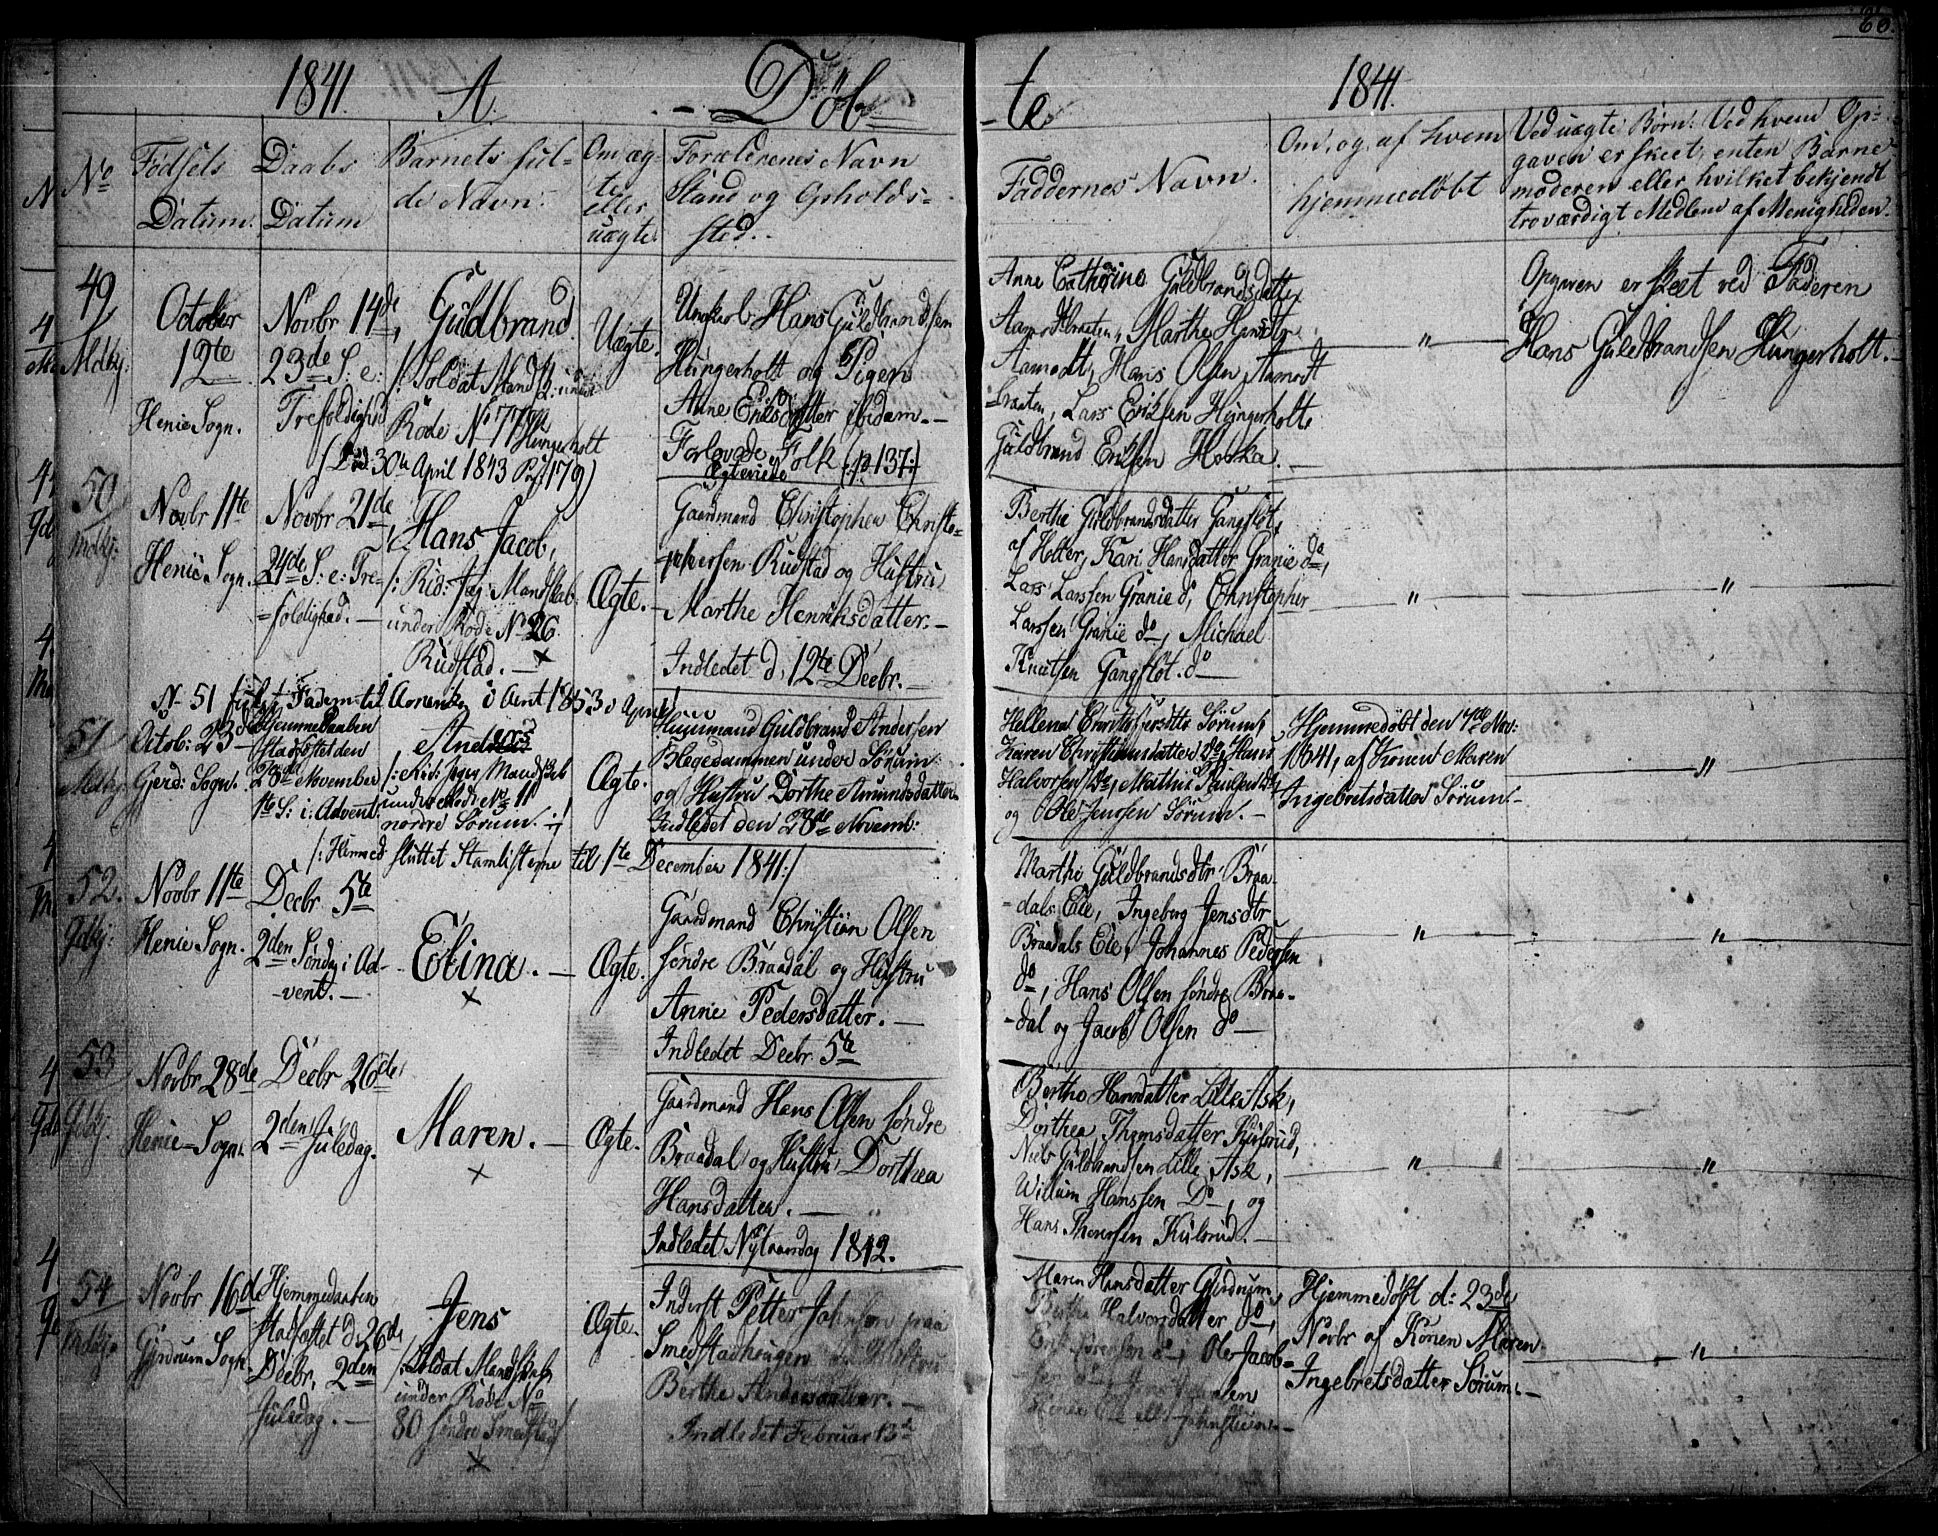 66.
1841. A. - Döb - te 1841.
No
Födsels Datum.
Daabs Datum
Barnets ful-
de Navn.
Om æg-
te
eller
uægte.
Forældrenes Navn
Stand og Opholds-
sted.
Faddernes Navn.
Om, og af hvem
hjemmedöbt
Ved uægte Börn: Ved hvem Op-
gaven er skeet, enten Barne-
moderen eller hvilket bekjendt
troværdigt Medlem af Menigheden.
49
Mdkj:
October
12te
Henie Sogn.
Novbr 14de,
23de S. e:
Trefoldighed
Guldbrand
/: Soldat Mandsk: under
Rode No 77
Hungerholt
(Död 30te April 1843 Pag: 179)
Uægte.
Ungkarl Hans Guldbrandsen
Hungerholt og Pigen
Anne Eriksdatter ibidem.-
Forlovede Folk (:p.137:)
Ægteviede
Anne Cathrine Guldbrandsdatter
Aamodtbraaten, Marthe Hansdtr
Aamodt, Hans Olsen Aamodt
-braaten, Lars Eriksen Hungerholt,
Guldbrand Eriksen Hoska.
"
Opgaven er skeet ved Faderen
Hans Guldbrandsen Hungerholt.-
50
Mdkj:
Novbr 11te
Henie Sogn.
Novbr 21de,
24de S: e: Tre-
=foldighed.-
Hans Jacob,
/: Rid: Jæg: Mandskab
under Rode No 26
Rudstad.-
x
Ægte.-
Gaardmand Christopher Christo-
phersen Rudstad og Hustru
Marthe Henriksdatter.-
Indledet d. 12te Decbr.-
Berthe Guldbrandsdatter Gangflöt,
af Holter, Kari Hansdatter Granie do,
Lars Larssen Granie do, Christopher
Larssen Granie do, Michael
Knutsen Gangflöt. do
"
"
No 51
51
Mdkj
Octob: 23de
Gjerd: Sogn.
Hjemmedaaben
stadfæstet den
28de November
1te S: i: Advent.
Andreas
/: Rid: Jæger Mandskab
under Rode No 11
nordre Sörum. :/
Ægte.
Huusmand Guldbrand Andersen
under Sörum
og Hustru Dorthe Amundsdatter
Indledet den 28de Novemb:
Hellena Sörum,
Karen Christiansdatter do, Hans
Halvorsen do,
og Ole Jenssen Sörum.-
Hjemmedöbt den 7de Nov:
1841, af Konen Maren
Ingebretsdatter Sörum.-
"
/: Hermed sluttet Stamlisterne til 1te December 1841:/
52.
Qdkj:
Novbr 11te
Henie Sogn.
Decbr 5te
2den Söndag i Ad-
-vent.-
Elina.-
x
Ægte.
Gaardmand Christian Olsen
söndre Braadal og Hustru
Anne Pedersdatter.-
Indledet Decbr 5te
Marthe Guldbrandsdtr Braa-
-dals Eie, Ingeborg Jensdtr
Braadals Eie, Johannes Pedersen
do, Hans Olsen söndre Braa-
-dal og Jacob Olsen do-
"
"
53
Qdkj.
Novbr 28de
Henie Sogn.
Decbr 26de,
2den Juledag.
Maren.-
x
Ægte.
Gaardmand Hans Olsen söndre
Braadal og Hustru Dorthea
Hansdatter.-
Indledet Nytaarsdag 1842.
Berthe Hansdatter Lille Ask,
Dorthea Thomsdatter Kulsrud,
Niels Guldbrandsen Lille Ask,
Willum Hanssen Do-, og
Hans Kulsrud.-
"
"
54
Mdkj
Novbr 16de
Gjerdrum Sogn
Hjemmedaaben
Stadfæstet d. 26de
Decbr, 2den
Juledag.-
Jens
/: Soldat Mandskab
under Rode No
80 söndre Smedstad
x
Ægte.
Inderst Petter Johnsen paa
Smedstadhougen og Hustru
Berthe Andersdatter.-
Indledet Februar 13de
Maren Hansdatter Gjerdrum,
Berthe Halvorsdatter do,
do, Ole Jacob-
Hjemmedöbt d: 23de
Novbr af Konen Maren
Ingebretsdatter Sörum.-
"